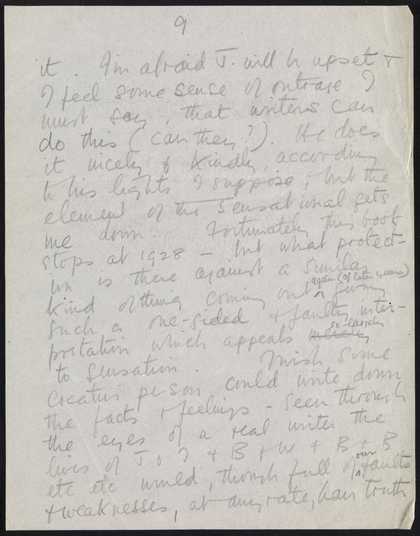 9
it. I'm afraid J. will be upset &
I feel some sense of outrage I
must say, that writers can
do this (can they?). He does
it nicely & kindly, according
to his lights I suppose, but the
element of the sensational gets
me down. Fortunately this book
stops at 1928 – but what protect-
ion is there against a similar
kind of thing coming out again (of later years) giving
such a one-sided & faulty inter-
pretation which appeals so largely
to sensation. I wish some
creative person could write down
the facts & feelings – seen through
the eyes of a real writer the
lives of J & I & B & W & B & B
etc etc would, though full of our faults
& weaknesses, at any rate, have truth